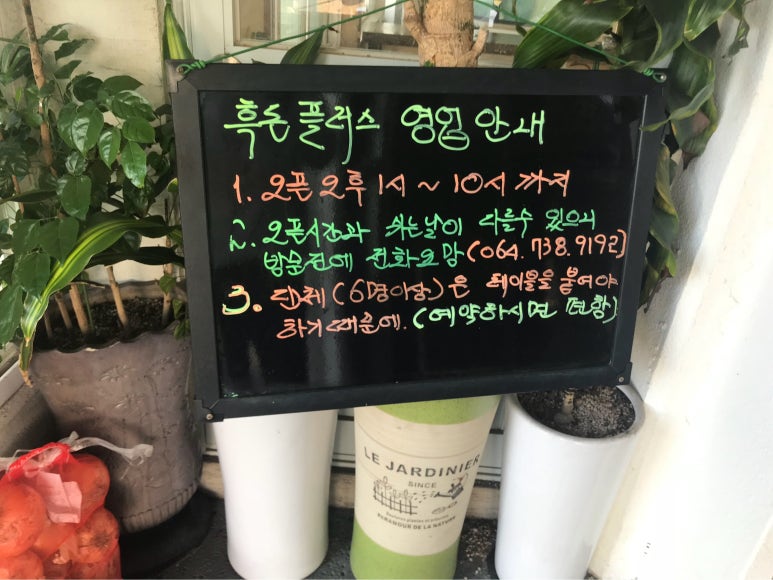 흑돈플러스 영업안내
1. 오픈 오후 1시 ~ 10시 까지
2. 오픈시간과 쉬는날이 다를수 있으니
방문전에 전화요망 (064.738.9192)
3. 단체 (6명이상) 은 테이블을 붙여야
하기때문에. (예약하시면 편함)
LE JARDINIER
SINCE
PARAMOUR DE LA NATURE